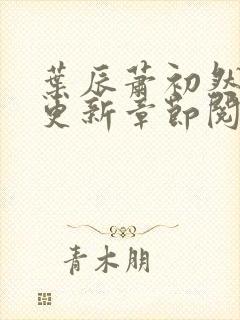 葉辰蕭初然
更新章節閱
青木朋